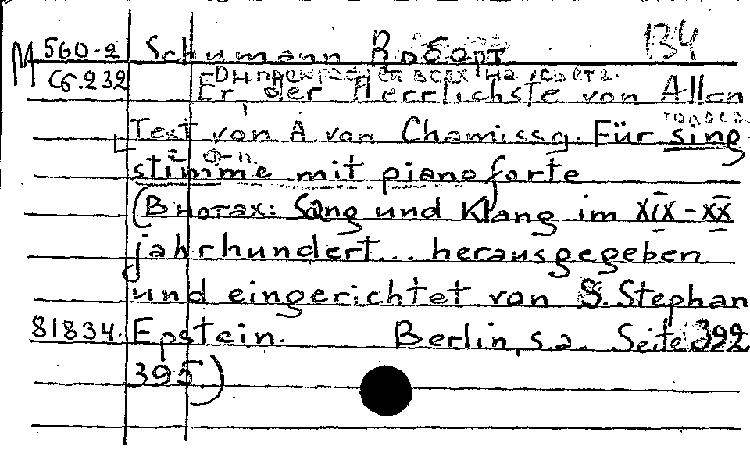 M 560-2 Schumann Роберт 134
Сб.232 Он прекрасней всех на свете.
Er, der Herrlichste von Allen
Text von A von Chamisso. Für sing
stimme mit pianoforte
(В нотах: Sang und Klang im XIX-XX
jahrhundert... herausgegeben
und eingerichtet von S. Stephan
81834. Epstein. Berlin, s.a. Seite 392
395)